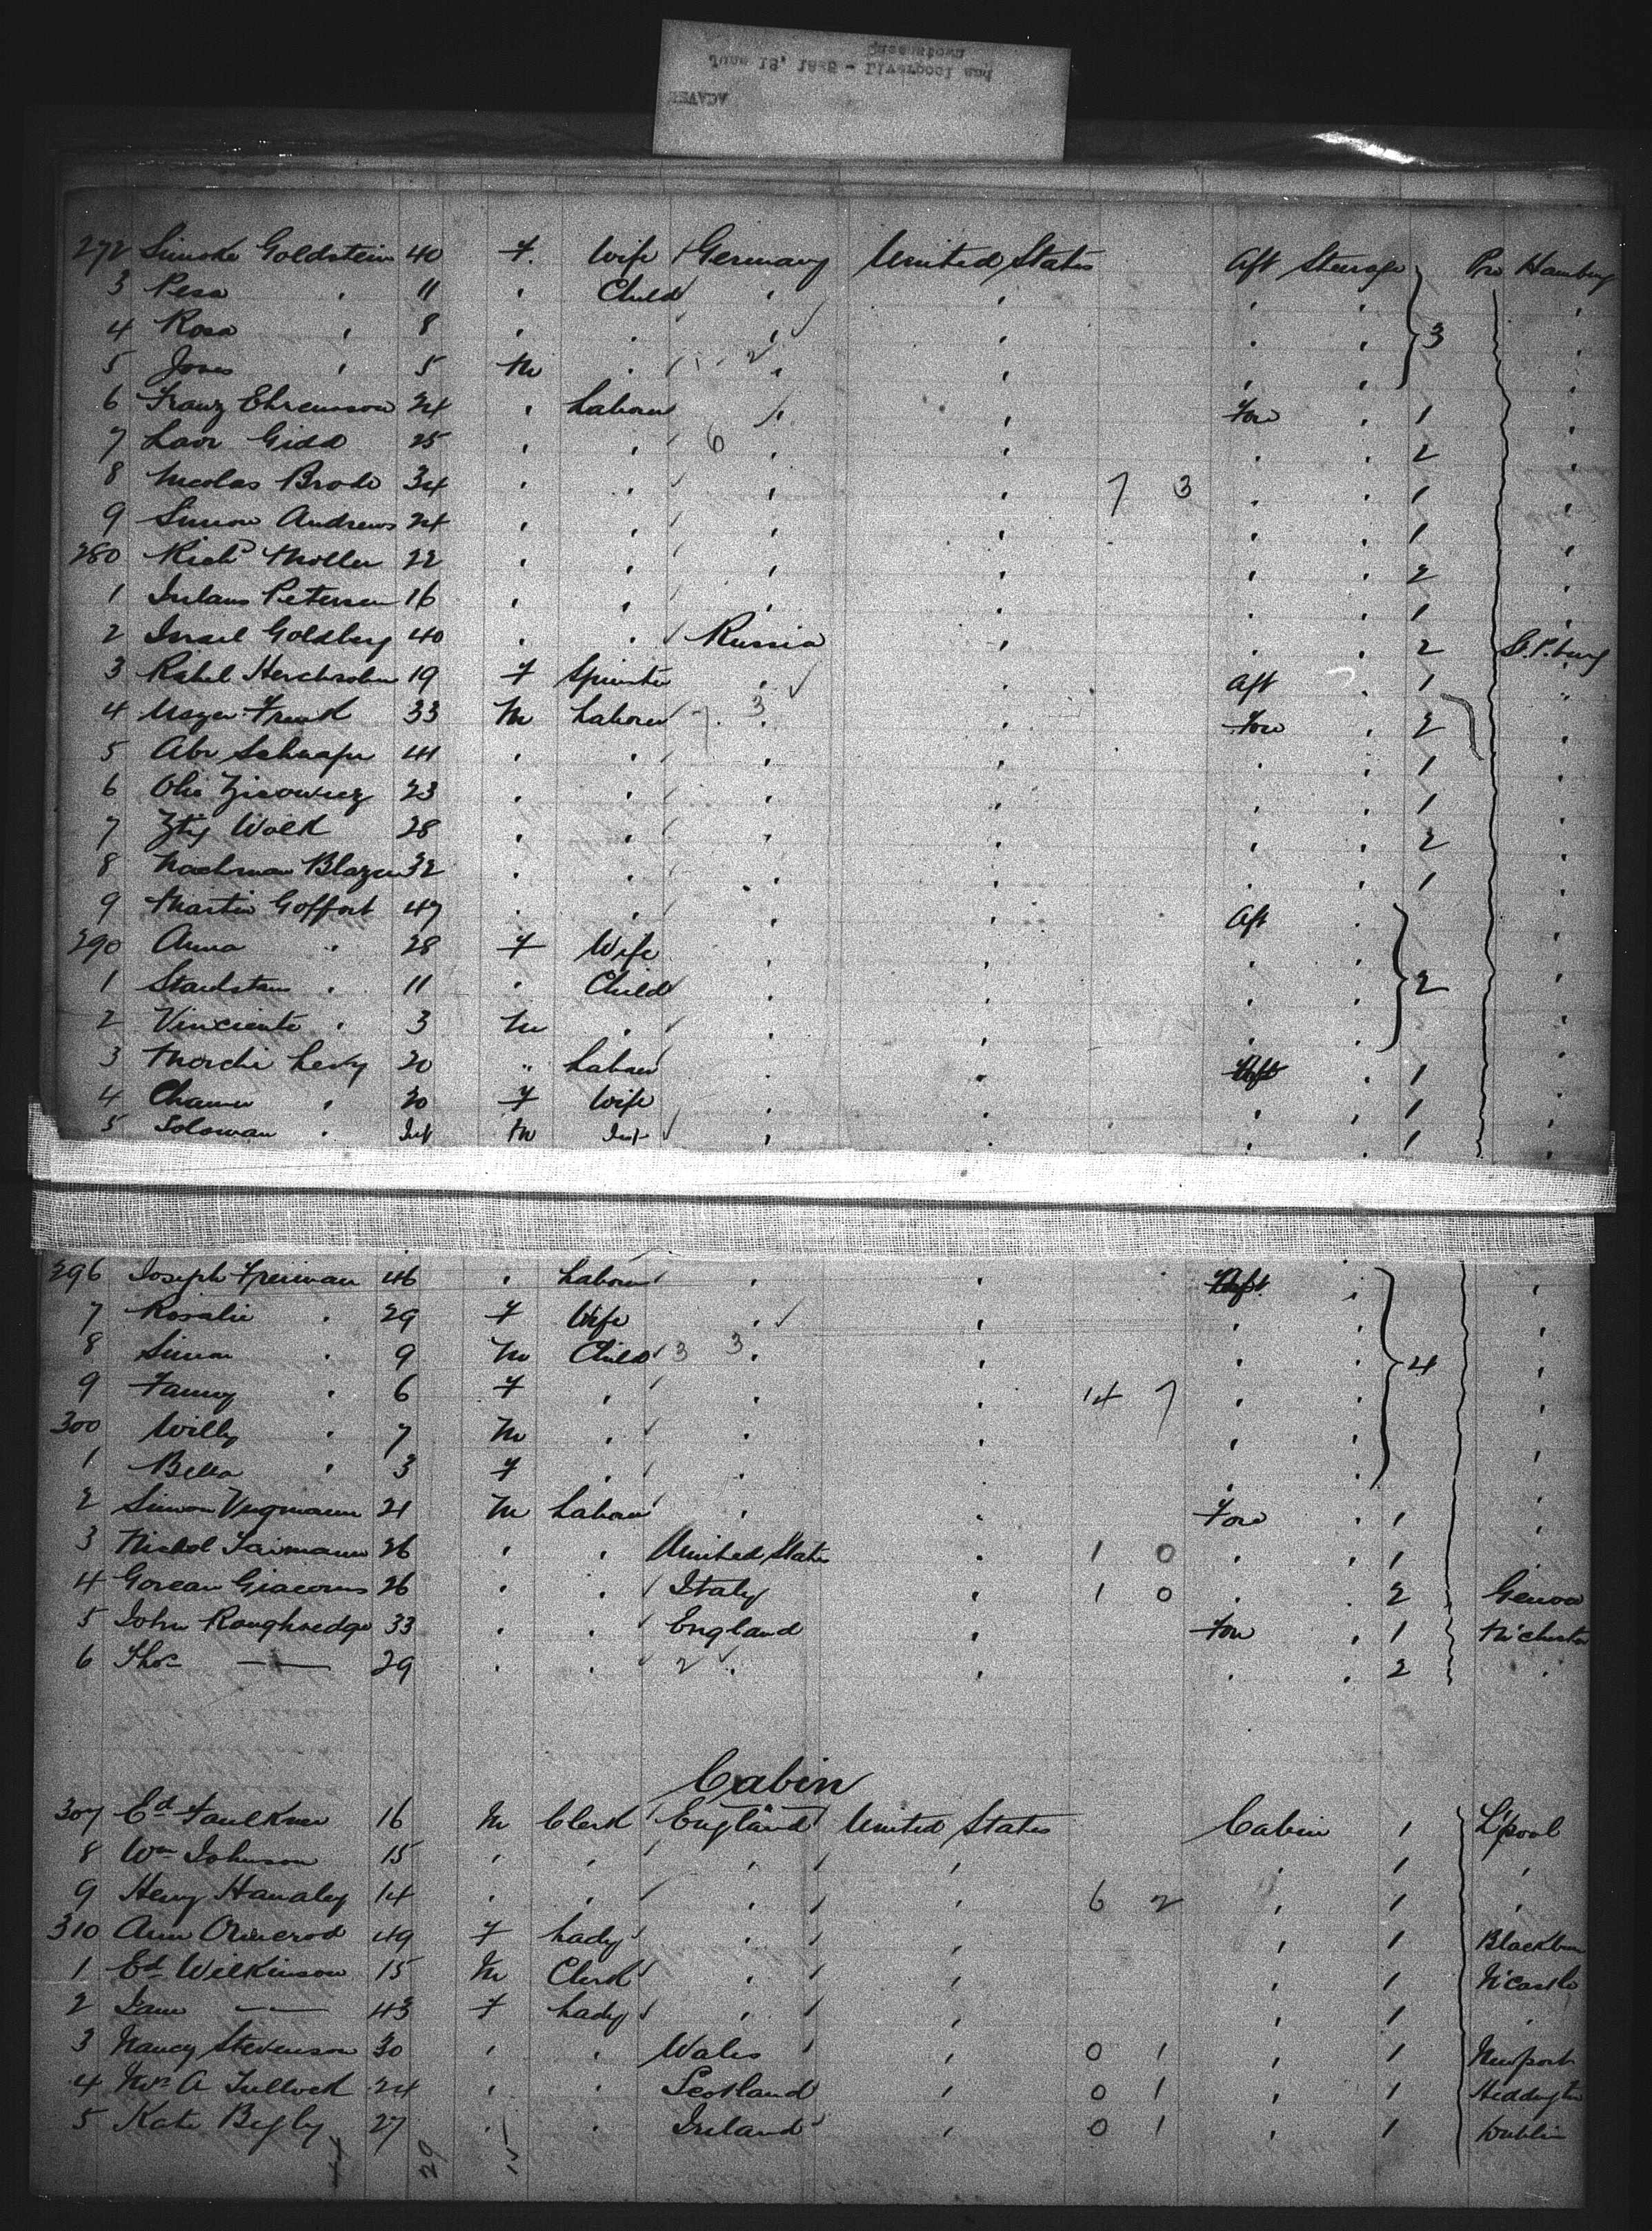 June 19, 1888 - Liverpool and
Queenstown
272 Simoke Goldstein 40 F. Wife Germany United States Aft Steerage 3 Pro Hamburg
3 Pesa " 11 " Child " " " " "
4 Rosa " 8 " " " " " " "
5 Jones " 5 M " 2 " " " " "
6 Franz Ehrensson 24 " Labour " " Fore " 1 "
7 Laor Gidd 25 " " 6 " " " " 2 "
8 Nicolas Brode 34 " " " " 7 3 " " 1 "
9 Simon Andrews 24 " " " " " " 1 "
280 Richd Moller 22 " " " " " " 2 "
1 Petersen 16 " " " " " " 1 "
2 Israel Goldberg 40 " " Russia " " " 2 St. P.burg
3 Rahel Herchsohn 19 F Spinster " " Aft " 1 "
4 Mayer Frank 33 M Labour 7 3 " " Fore " 2 "
5 Abr Schnaper 41 " " " " " " 1 "
6 23 " " " " " " 1 "
7 Wolk 28 " " " " " " 2 "
8 Nachman Blazen 32 " " " " " " 1 "
9 Martin Goffort 47 " " " " Aft " 2 "
290 Anna " 28 F Wife " " " " "
1 " 11 " Child " " " " "
2 Vincenti " 3 M " " " " " "
3 Mordche Levy 20 " Labour " " Aft " 1 "
4 " 20 F Wife " " " " 1 "
5 Soloman " Inf M Inf " " " " 1 "
296 Joseph Freiman 46 " Labour " " Aft " 4 "
7 Rosalie " 29 F Wife " " " " "
8 Simon " 9 M Child 3 3 " " " " "
9 Fanny " 6 F " " " 14 7 " " "
300 Willy " 7 M " " " " " "
1 Bella " 3 F " " " " " "
2 Simon Wugmann 21 M Labour " " Fore " 1 "
3 Nichol Taimann 26 " " United States " 1 0 " " 1 "
4 Gorean Giacoms 26 " " Italy " 1 0 " " 2 Genoa
5 John Roughsedge 33 " " England " Fore " 1 M'chester
6 Thos —— 29 " " 2 " " " " 2 "
Cabin
307 Ed Faulkner 16 M Clerk England United States Cabin 1 L'pool
8 Wm Johnson 15 " " " " " 1 "
9 Henry Hanaley 14 " " " " 6 2 " 1 "
310 Ann Ormerod 49 F Lady " " " 1 Blackburn
1 Ed Wilkinson 15 M Clerk " " " 1 N'Castle
2 Jane —— 43 F Lady " " " 1 "
3 Nancy Stevenson 30 " " Wales " 0 1 " 1 Newport
4 Mrs A Tullock 24 " " Scotland " 0 1 " 1
5 Kate Begley 27 " " Ireland " 0 1 " 1 Dublin
29